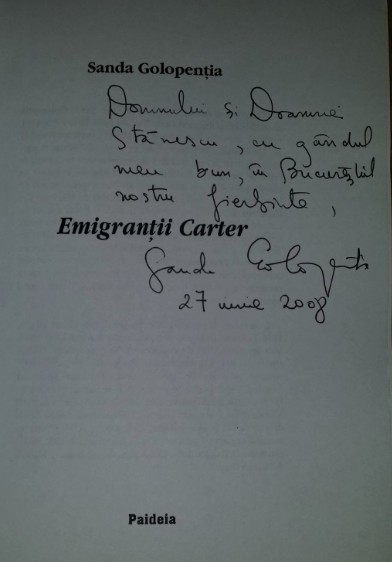 Sanda Golopenția
Domnului și Doamnei
Stănescu, cu gândul
meu bun, în Bucureștiul
nostru fierbinte,
Emigranții Carter
Sanda Golopenția
27 iunie 2008
Paideia